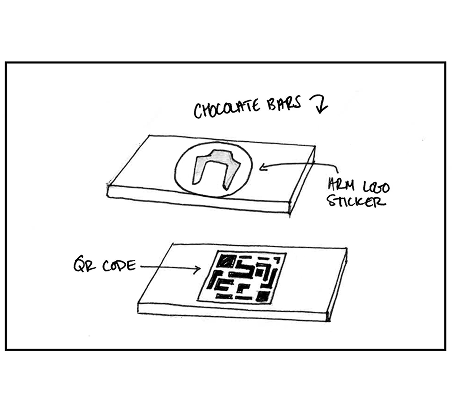 CHOCOLATE BARS
ARM LOGO
STICKER
QR CODE